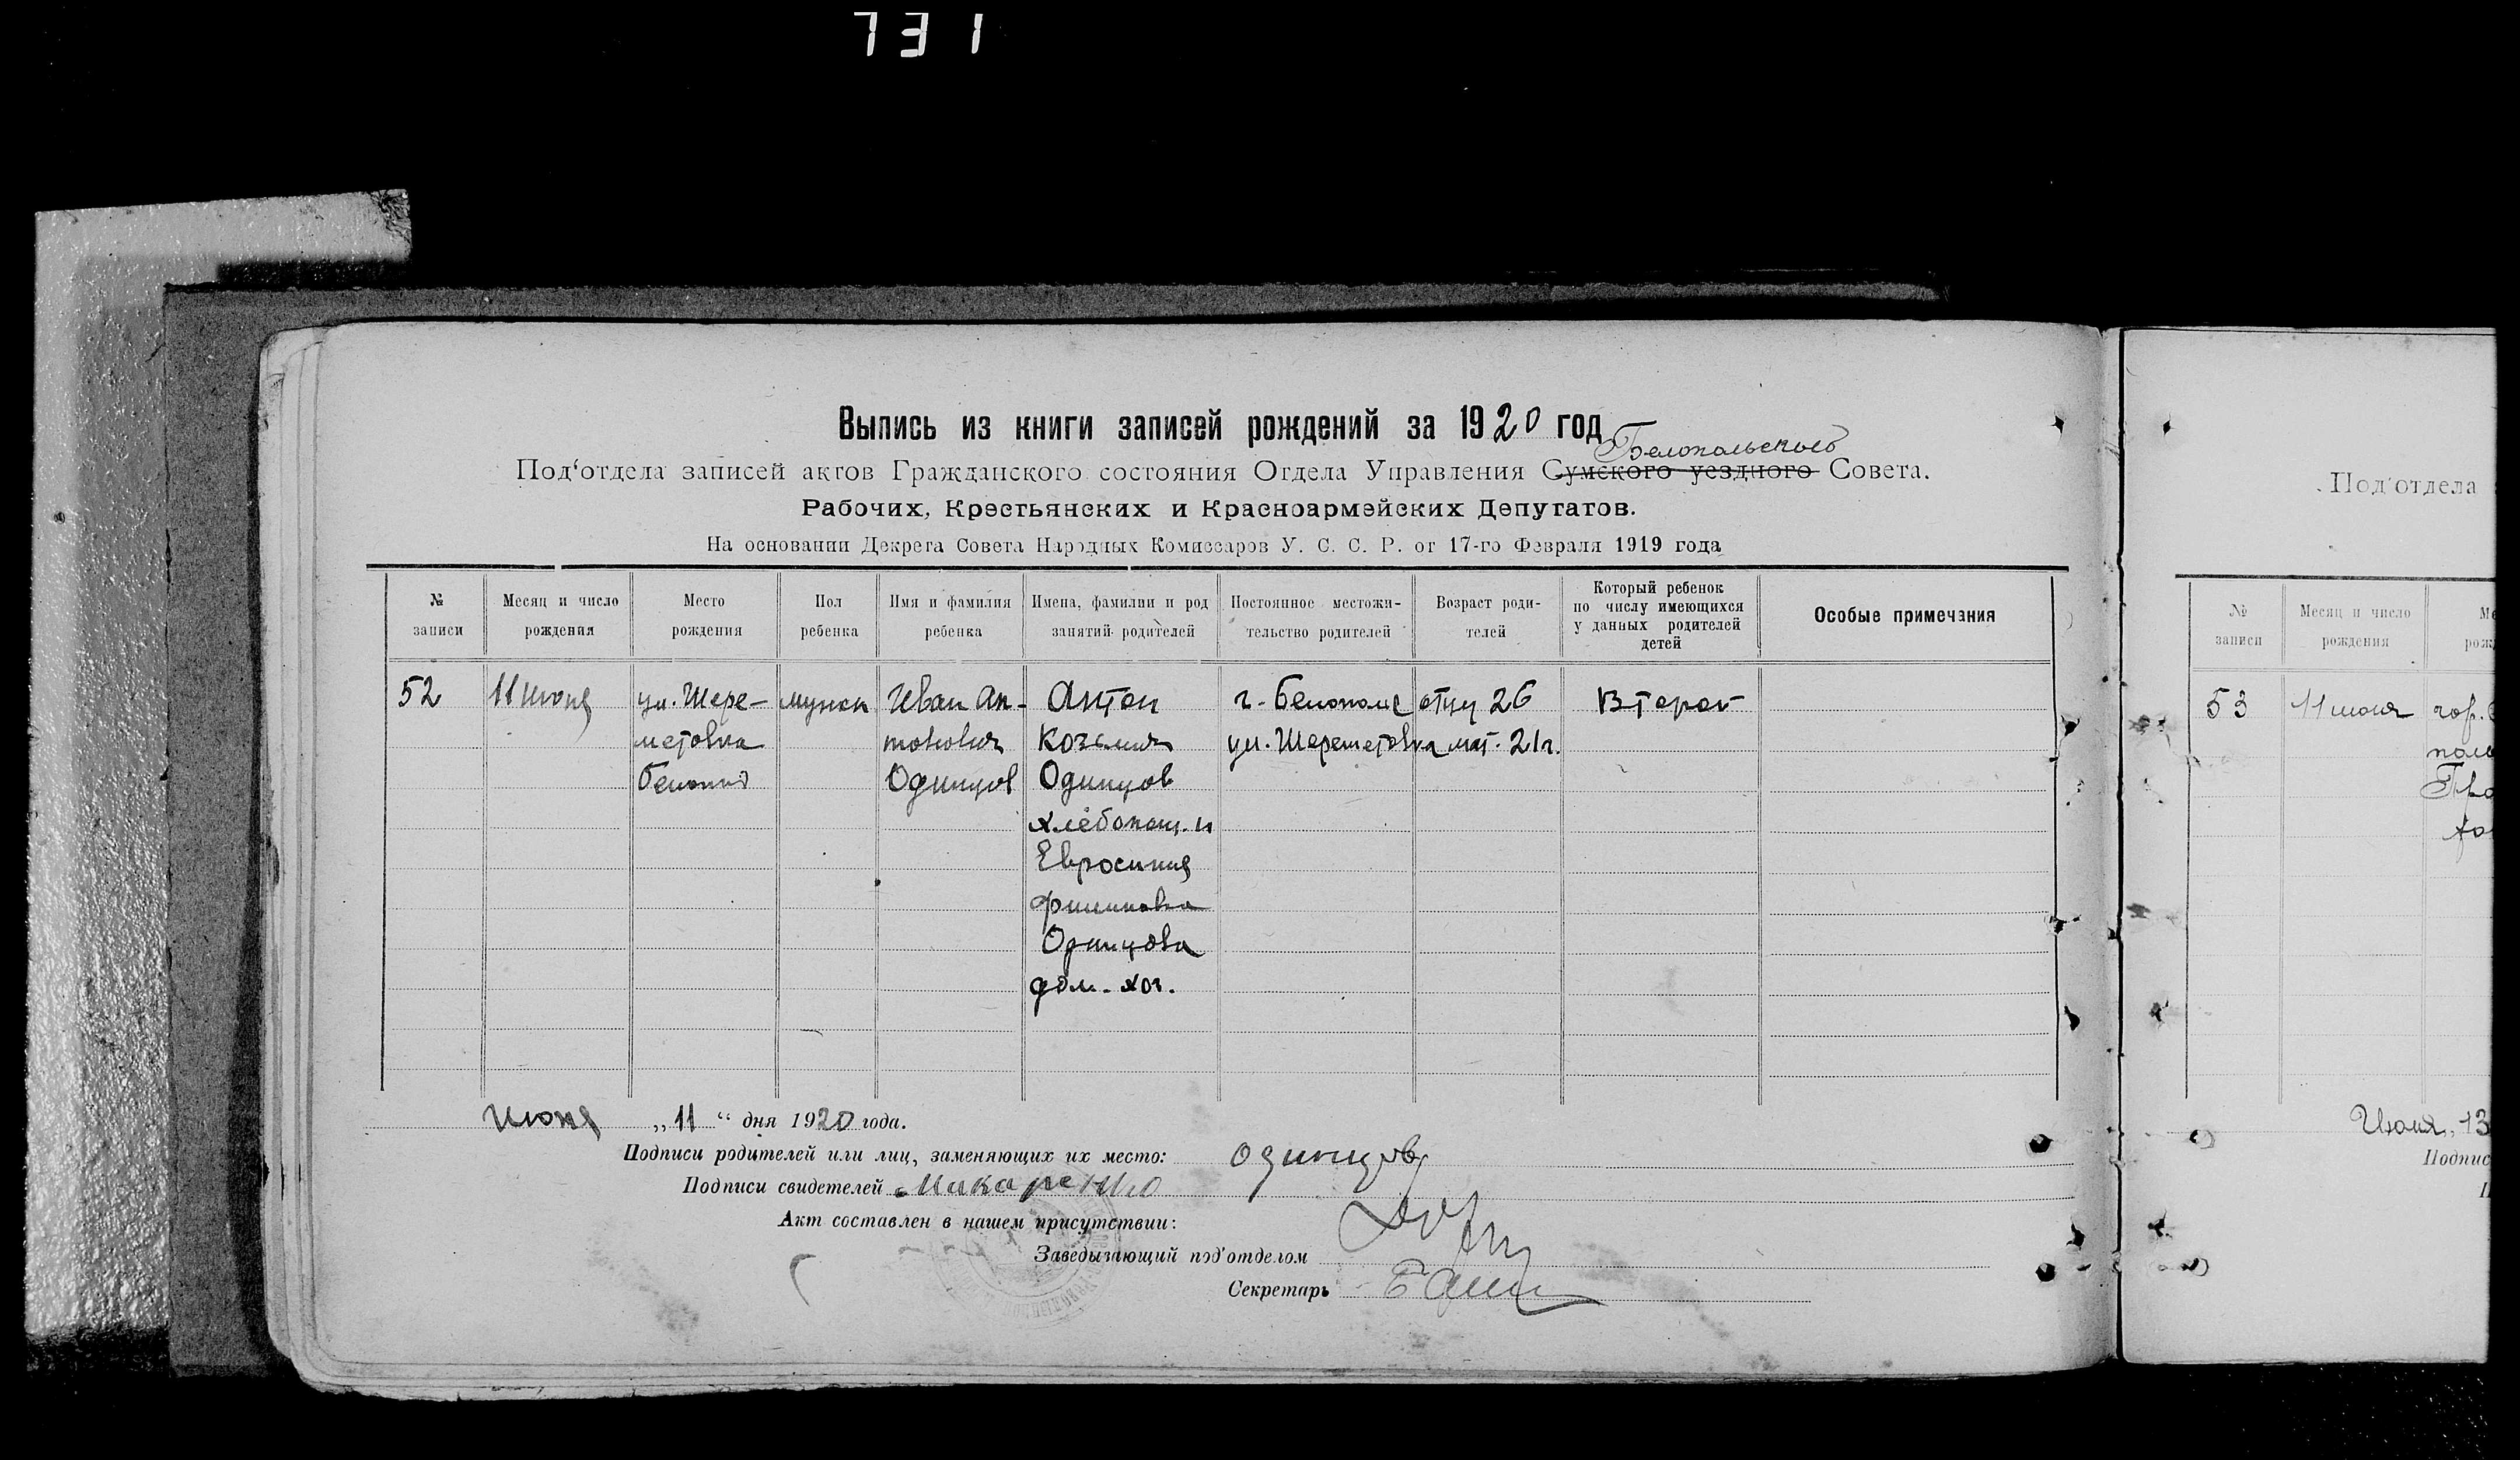 731
Выпись из книги записей рождений за 1920 год
Белопольского
Под‘отдела записей актов Гражданского состояния Отдела Управления Сумского уездного Совета.
Рабочих, Крестьянских и Красноармейских Депутатов.
На основании Декрета Совета Народных Комиссаров У. С. С. Р. от 17-го Февраля 1919 года
№ записи
Месяц и число рождения
Место рождения
Пол ребенка
Имя и фамилия ребенка
Имена, фамилии и род занятий родителей
Постоянное местожи-
тельство родителей
Возраст роди-
телей
Который ребенок
по числу имеющихся
у данных родителей
детей
Особые примечания
52
11 июня
ул. Шере-
метовка
Белопол
мужск
Иван Ан-
тонович
Одинцов
Антон
Козьмич
Одинцов
хлебопаш. и
Евросиния
Одинцова
дом. хоз.
г. Белополе
ул. Шереметовка
отцу 26
мат. 21 г.
Второй
Июня „11“ дня 1920 года.
Подписи родителей или лиц, заменяющих их место: Одинцов
Подписи свидетелей Макаренко
Акт составлен в нашем присутствии:
Заведывающий под'отделом
Секретарь
Под'отдела
№ записи
Месяц и число
рождения
53
11 июня
гор.
Июня „13
Подпис